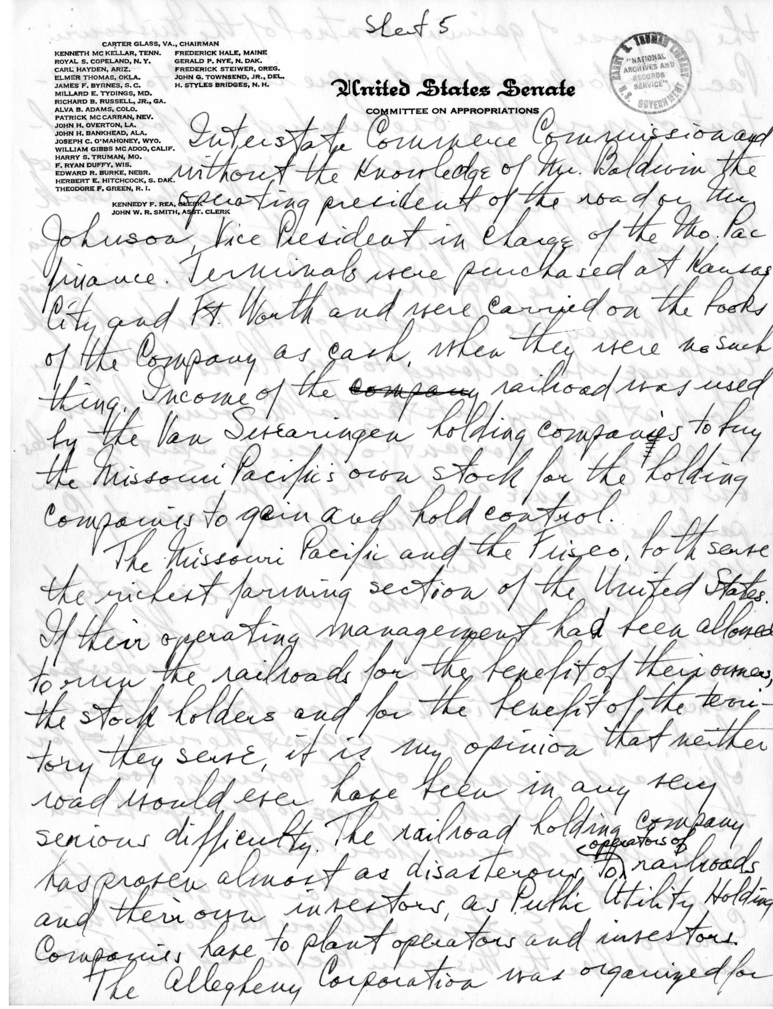 Sheet 5
CARTER GLASS, VA., CHAIRMAN
KENNETH MC KELLAR, TENN. FREDERICK HALE, MAINE
ROYAL S. COPELAND, N. Y. GERALD P. NYE, N. DAK.
CARL HAYDEN, ARIZ. FREDERICK STEIWER, OREG.
ELMER THOMAS, OKLA. JOHN G. TOWNSEND, JR., DEL.
JAMES F. BYRNES, S. C. H. STYLES BRIDGES, N. H.
MILLARD E. TYDINGS, MD.
RICHARD B. RUSSELL, JR., GA.
ALVA B. ADAMS, COLO.
PATRICK MC CARRAN, NEV.
JOHN H. OVERTON, LA.
JOHN H. BANKHEAD, ALA.
JOSEPH C. O'MAHONEY, WYO.
WILLIAM GIBBS MC ADOO, CALIF.
HARRY S. TRUMAN, MO.
F. RYAN DUFFY, WIS.
EDWARD R. BURKE, NEBR.
HERBERT E. HITCHCOCK, S. DAK.
THEODORE F. GREEN, R. I.
KENNEDY F. REA, CLERK
JOHN W. R. SMITH, ASST. CLERK
United States Senate
COMMITTEE ON APPROPRIATIONS
HARRY S. TRUMAN LIBRARY
"NATIONAL
ARCHIVES AND
RECORDS
SERVICE"
U. S. GOVERNMENT
Interstate Commerce Commission and
without the knowledge of Mr. Baldwin the
operating president of the road or Mr.
Johnson, Vice President in charge of the Mo. Pac
finance. Terminals were purchased at Kansas
City and Ft. Worth and were carried on the books
of the Company as cash, when they were no such
thing. Income of the company railroad was used
by the Van Swearingen holding companies to buy
the Missouri Pacific's own stock for the holding
companies to gain and hold control.
The Missouri Pacific and the Frisco, both serve
the richest farming section of the United States.
If their operating management had been allowed
to run the railroads for the benefit of their owners,
the stock holders and for the benefit of the terri-
tory they serve, it is my opinion that neither
road would ever have been in any very
serious difficulty. The railroad holding company
operators of
has proven almost as disasterous, to railroads
and their own investors, as Public Utility Holding
Companies have to plant operators and investors.
The Allegheny Corporation was organized for